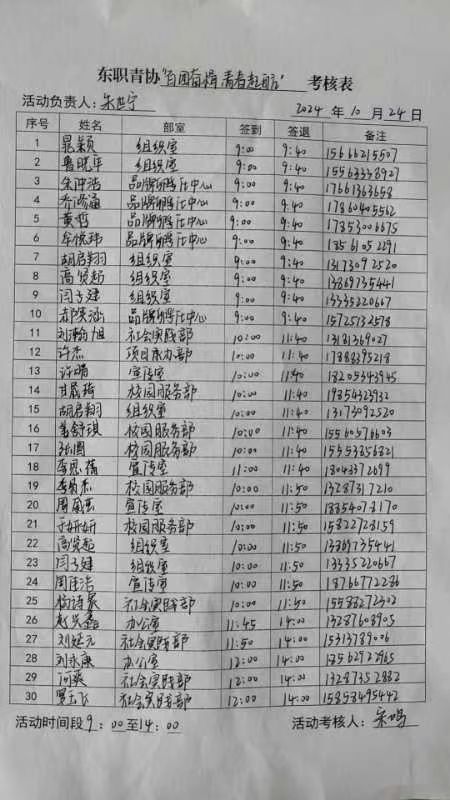 东职青协"百团奋楫 青春起航" 考核表
活动负责人: 2024 年 10 月 24 日
序号 姓名 部室 签到 签退 备注
1 晁颖 组织室 9:00 9:40 15666215507
2 鲁晓华 组织室 9:00 9:40 15563358927
3 品牌孵化中心 9:00 9:40 17661363658
4 品牌孵化中心 9:00 9:40 17860405562
5 黄哲 品牌孵化中心 9:00 9:40 17853006675
6 品牌孵化中心 9:00 9:40 18561052291
7 胡启翔 组织室 9:00 9:40 13173092520
8 高贤超 组织室 9:00 9:40 13869735441
9 闫子建 组织室 9:00 9:40 13335220667
10 品牌孵化中心 9:00 9:40 15725132578
11 刘瀚旭 社会实践部 10:00 11:40 13181369027
12 许杰 项目承办部 10:00 11:40 17888395218
13 许晴 宣传室 10:00 11:40 18205343945
14 甘晟琦 校园服务部 10:00 11:40 19854323932
15 胡启翔 组织室 10:00 11:40 13173092520
16 姜舒琪 校园服务部 10:00 11:40 15560576603
17 校园服务部 10:00 11:40 15353856821
18 李思蒨 宣传室 11:00 11:40 18043372699
19 校园服务部 10:00 11:50 13287317210
20 宣传室 10:00 11:50 18854078170
21 于妍妍 校园服务部 10:00 11:50 15822728159
22 高贤超 组织室 10:00 11:50 13869735441
23 闫子建 组织室 10:00 11:50 13335220667
24 周佳浩 宣传室 10:00 11:50 18766772286
25 社会实践部 10:00 11:50 15588272302
26 赵兴鑫 办公室 11:45 14:00 13287608905
27 刘延元 社会实践部 11:50 14:00 15313789006
28 刘永康 办公室 12:00 14:00 18562922965
29 社会实践部 12:00 14:00 13287352882
30 罗云飞 社会实践部 12:00 14:00 15858495442
活动时间段 9:00至14:00 活动考核人: